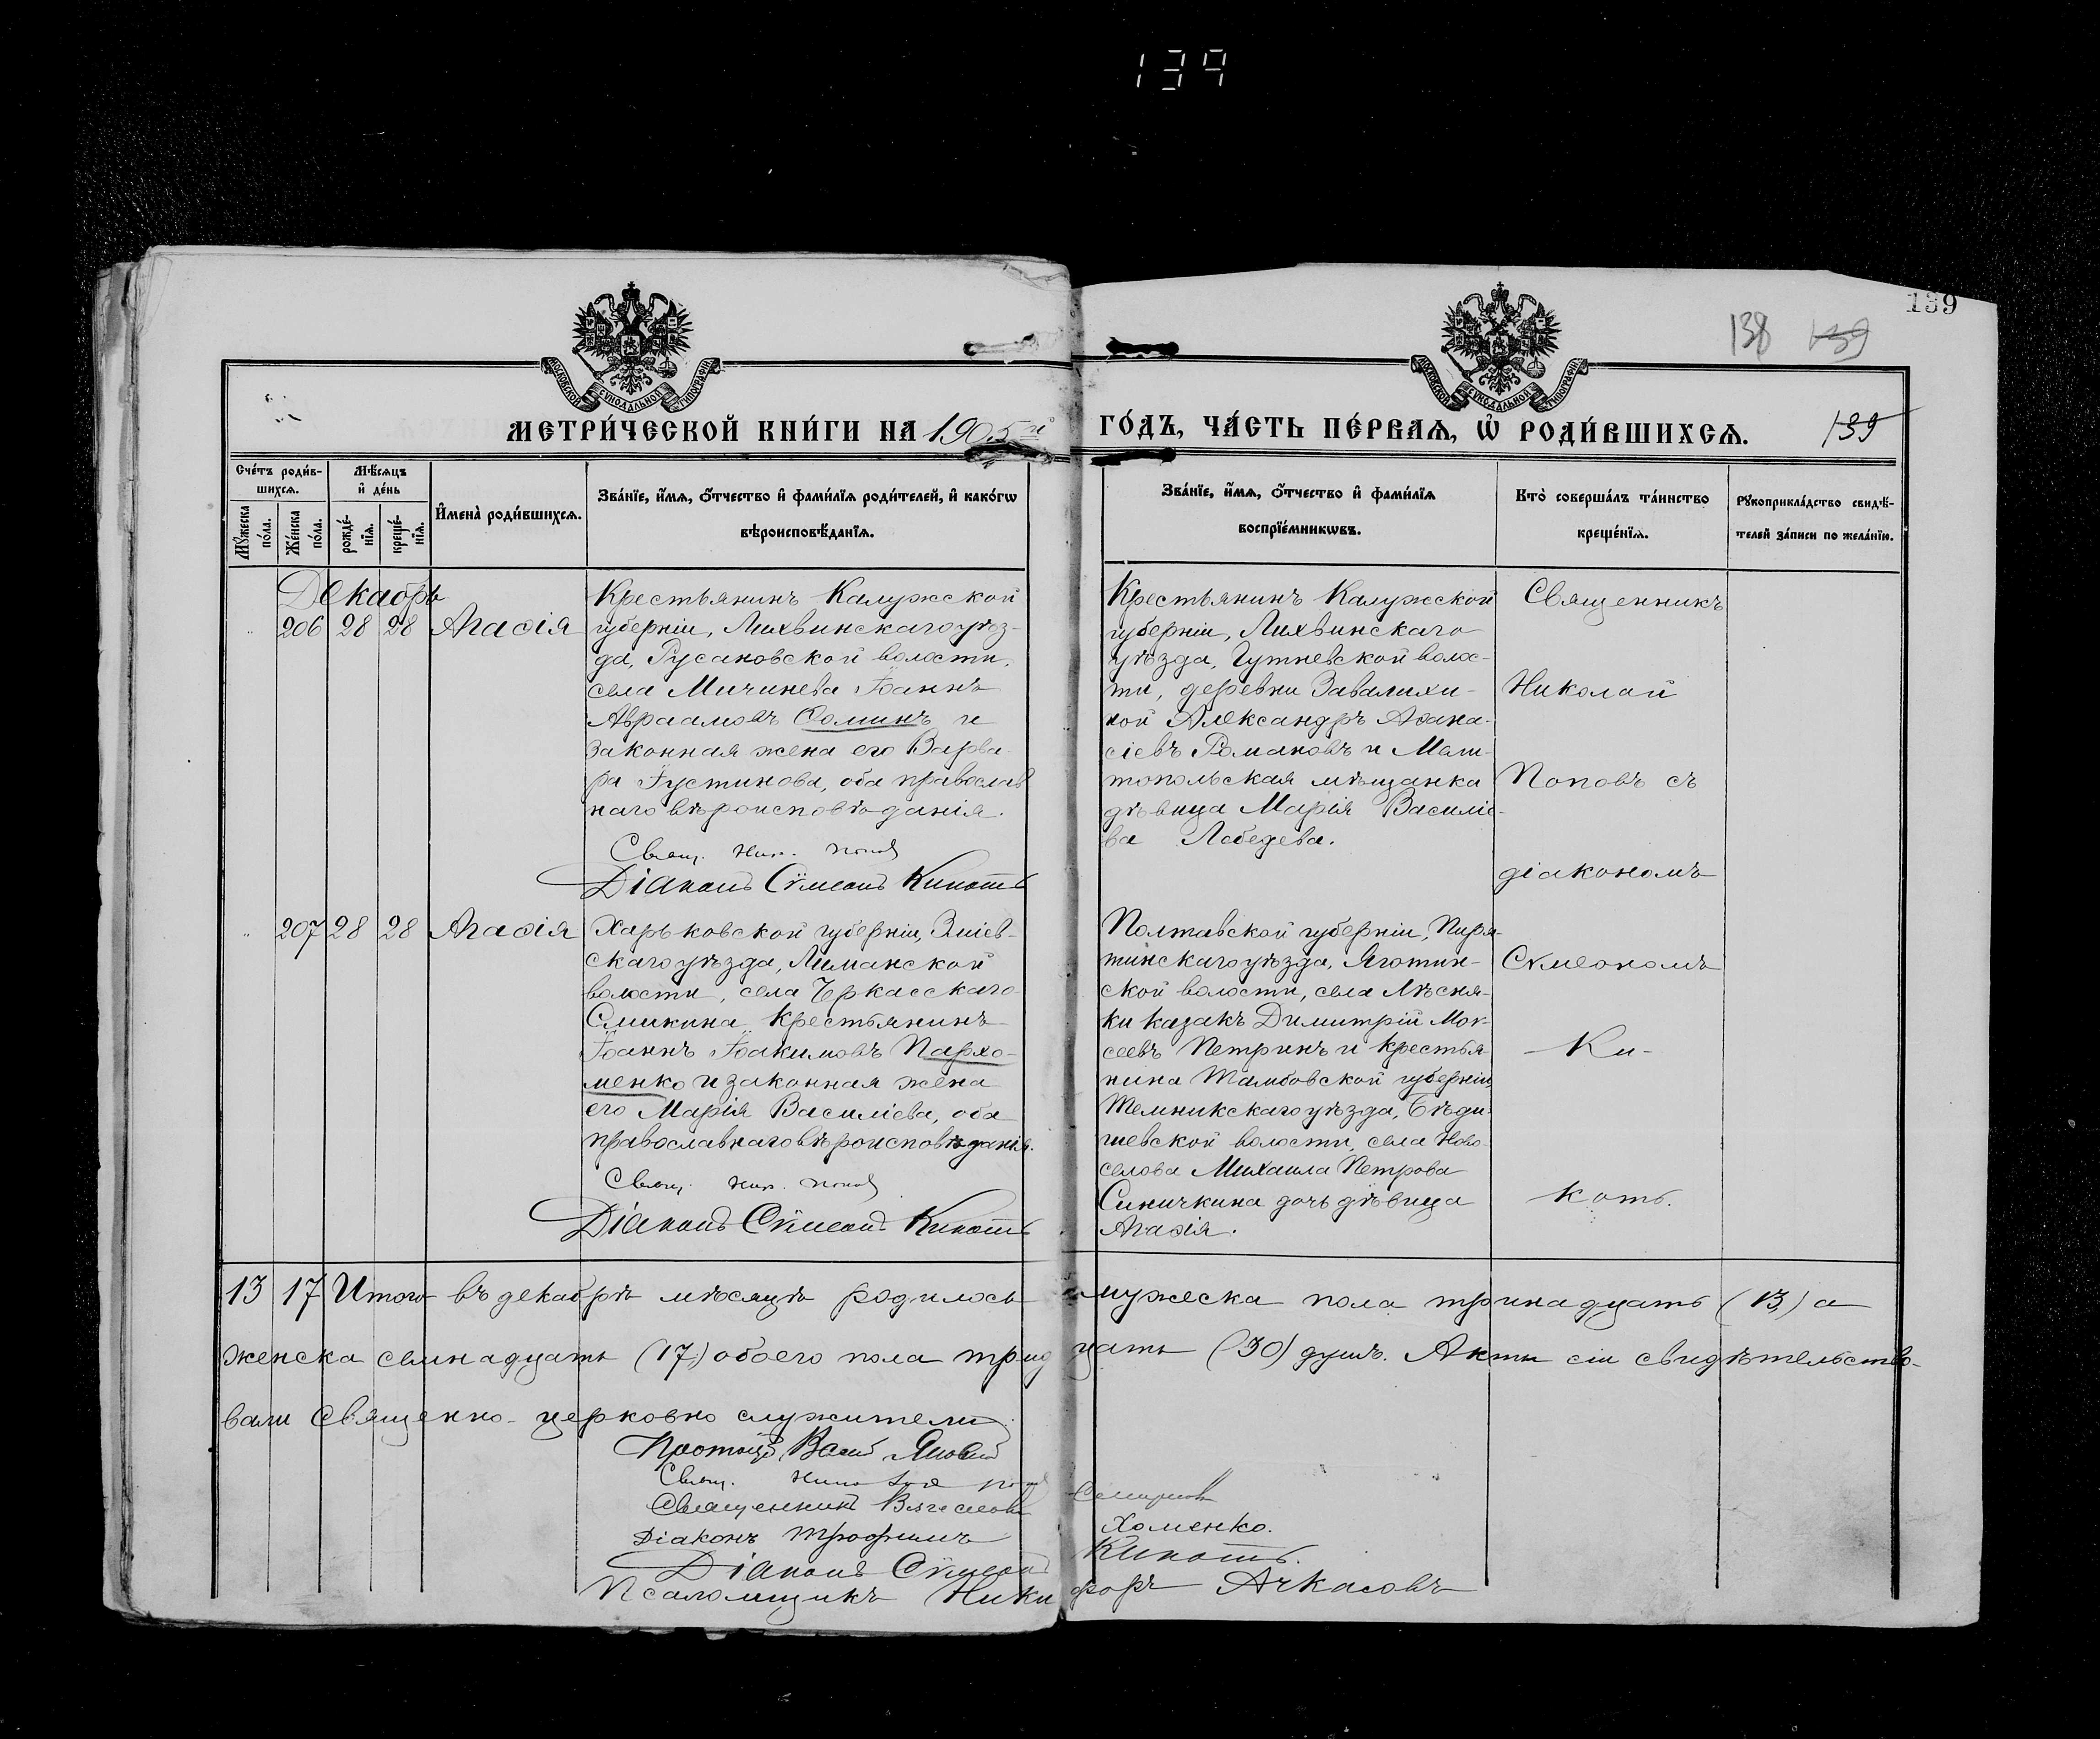 139
139
138 139
МОСКОВСКОЙ СѴНОДАЛЬНОЙ ТИПОГРАФІИ
МОСКОВСКОЙ СѴНОДАЛЬНОЙ ТИПОГРАФІИ
МЕТРИ́ЧЕСКОЙ КНИ́ГИ НА 1905й ГО́ДЪ, ЧА́СТЬ ПЕ́РВАЯ, Ѡ҆ РОДИ́ВШИХСЯ. 139
Сче́тъ роди́в-
шихся.
Мꙋ́жеска по́ла.
Же́нска по́ла.
Мѣ́сяцъ и҆ де́нь
рожде́-
нїя.
креще́-
нїя.
И҆мена̀ роди́вшихся.
Зва́нїе, и҆́мя, ѻ҆́тчество и҆ фами́лїя роди́телей, и҆ како́гѡ
вѣроисповѣ́данїя.
Зва́нїе, и҆́мя, ѻ҆́тчество и҆ фами́лїя
воспрїе́мникѡвъ.
Кто̀ соверша́лъ та́инство
креще́нїя.
Рꙋкоприкла́дство свидѣ́-
телей за́писи по жела́нїю.
Декабрь
206 28 28 Агаѳія
Крестьянинъ Калужской
губерніи, Лихвинскаго уѣз-
да, Русановской волости,
села Мичинева Іоаннъ
Авраамовъ Ѳоминъ и
законная жена его Варва-
ра Іустинова, оба православ
наго вѣроисповѣданія.
Свящ. Ник. Попов
Діаконъ Сѵмеонъ Кикоть
Крестьянинъ Калужской
губерніи, Лихвинскаго
уѣзда, Гутневской волос-
ти, деревни Завалихи-
ной Александръ Аѳана-
сіевъ Романовъ и Мели-
топольская мѣщанка
дѣвица Марія Василіе-
ва Лебедева.
Священникъ
Николай
Поповъ съ
діакономъ
Сѵмеономъ
Ки-
коть.
207 28 28 Агаѳія
Харьковской губерніи, Зміев-
скаго уѣзда, Лиманской
волости, села Черкасскаго
Бишкина крестьянинъ
Іоаннъ Іоакимовъ Пархо-
менко и законная жена
его Марія Василіева, оба
православнаго вѣроисповѣданія.
Свящ. Ник. Попов
Діаконъ Сѵмеонъ Кикоть
Полтавской губерніи, Пиря-
тинскаго уѣзда, Яготин-
ской волости, села Лѣсня-
ки казакъ Димитрій Мої-
сеевъ Петринъ и крестья
нина Тамбовской губерніи,
Темникскаго уѣзда, Бѣди-
шевской волости, села Ново-
селова Михаила Петрова
Синичкина дочь дѣвица
Агаѳія.
13 17 Итого въ декабрѣ мѣсяцѣ родилось мужеска пола тринадцать (13) а
женска семнадцать (17) обоего пола тридцать (30) душъ. Акты сіи свидѣтельство-
вали Священно-церковно служители
Протоіер. Васил
Свящ. Николай Попов
Священникъ Вячеславъ
Діаконъ Трофимъ Хоменко.
Діаконъ Сѵмеонъ Кикоть.
Псаломщикъ Никифоръ Ачкасовъ